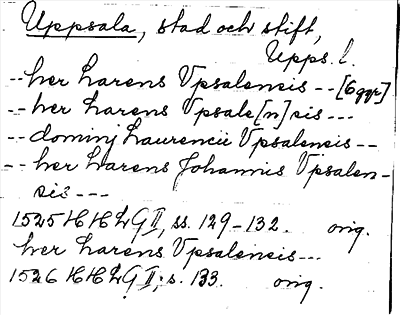 Uppsala, stad och stift,
Upps. l.
-- her Larens Vpsalensis -- [6 ggr]
-- her Larens Vpsale[n]sis ---
-- dominj Laurencii Vpsalensis --
-- her Larens Johannis Vpsalen-
sis ---
1525 HH LG II, ss. 129-132. orig.
her Larens Vpsalensis ---
1526 HH LG II; s. 133. orig.